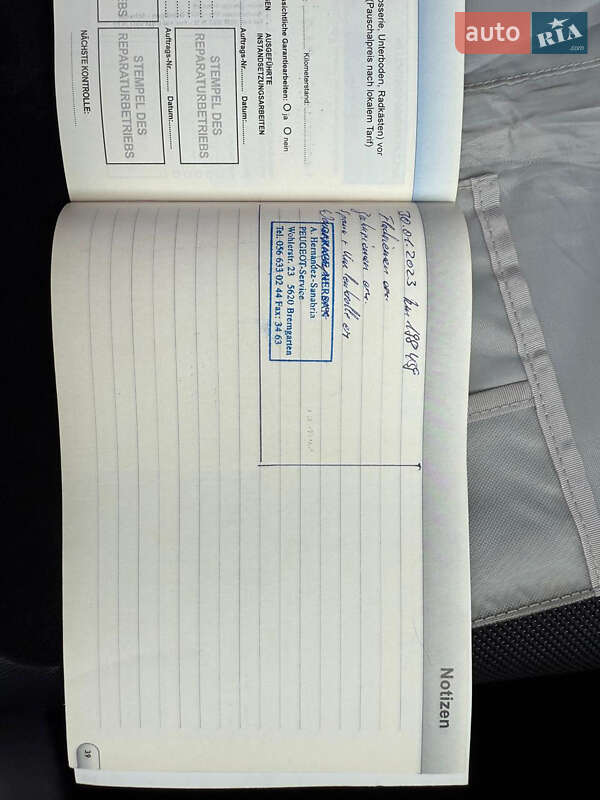 auto RIA .com
osserie, Unterboden, Radkästen) vor
(Pauschalpreis nach lokalem Tarif)
Kilometerstand:
sichtliche Garantiearbeiten: O ja O nein
AUSGEFÜHRTE
INSTANDSETZUNGSARBEITEN
Auftrags-Nr. Datum:
STEMPEL DES
REPARATURBETRIEBS
Auftrags-Nr. Datum:
STEMPEL DES
REPARATURBETRIEBS
NÄCHSTE KONTROLLE:
EBS
Notizen
30.01.2023 km 198 459
A. Hernandez-Sanabria
PEUGEOT-Service
Wohlerstr. 23 5620 Bremgarten
Tel. 056 633 02 44 Fax: 34 63
39